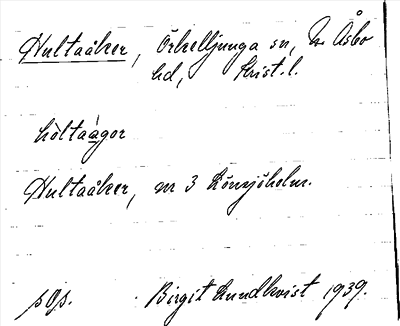 Hultaåker, Örkelljunga sn, N. Åsbo
hd, Krist. l.
hòltaágor
Hultaåker, nr 3 Rönnjöholm.
Birgit Lundkvist 1939.